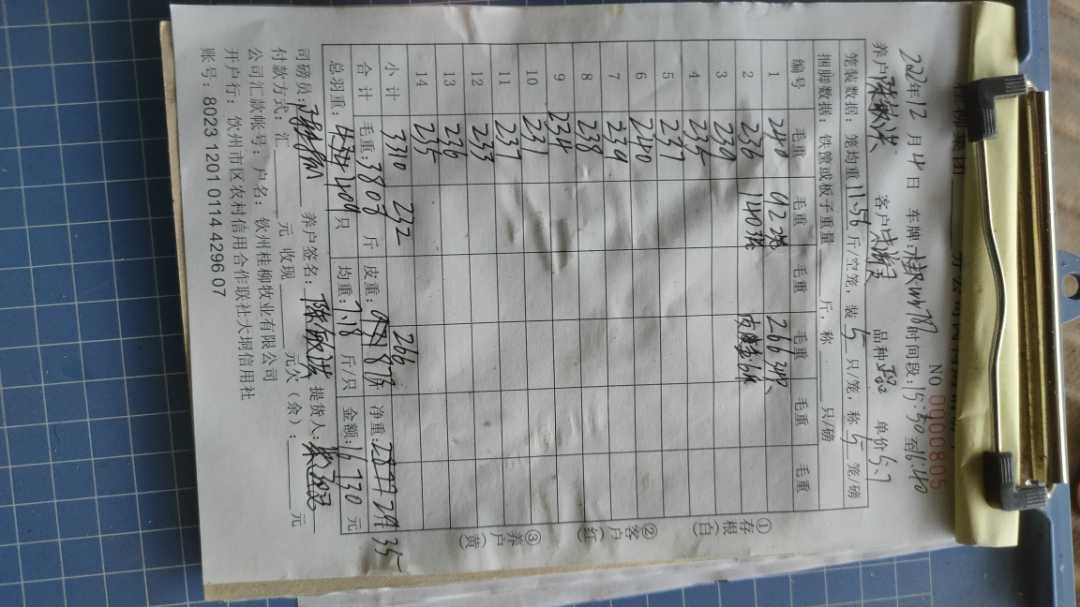 NO 0000805
2022年12月4日 车牌:桂 时间段:15:30至16:40
养户 陈敏洪 客户 品种 单价5.7
笼装数据: 笼均重11.56斤/空笼, 装5只/笼, 称5笼/磅
捆脚数据: 铁篼或板子重量 斤, 称 只/磅
编号 毛重 毛重 毛重 毛重 毛重 毛重
1 240 92 266
2 236 140
3 239
4 235
5 237
6 240
7 239
8 238
9 234
10 231
11 237
12 233
13 236
14 235
小计 3310 232 266
合计 毛重:3808斤 皮重: 873 净重: 2935
总羽重: 409只 均重:7.18斤/只 金额:16730元
司磅员: 养户签名:陈敏洪 提货人:
付款方式: 汇 元 收现 元欠(余): 元
公司汇款帐号: 户名: 钦州桂柳牧业有限公司
开户行: 钦州市区农村信用合作联社大垌信用社
账号: 8023 1201 0114 4296 07
①存根(白)
②客户(红)
③养户(黄)